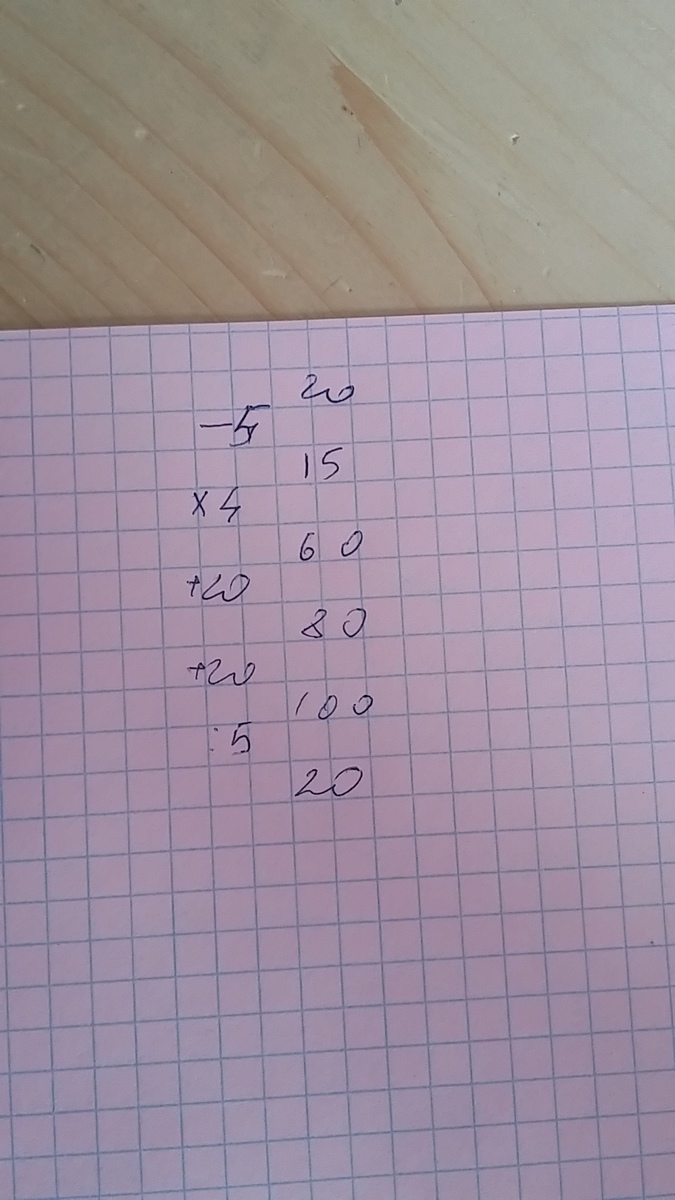 20
-5
15
x4
60
+20
80
+20
100
:5
20